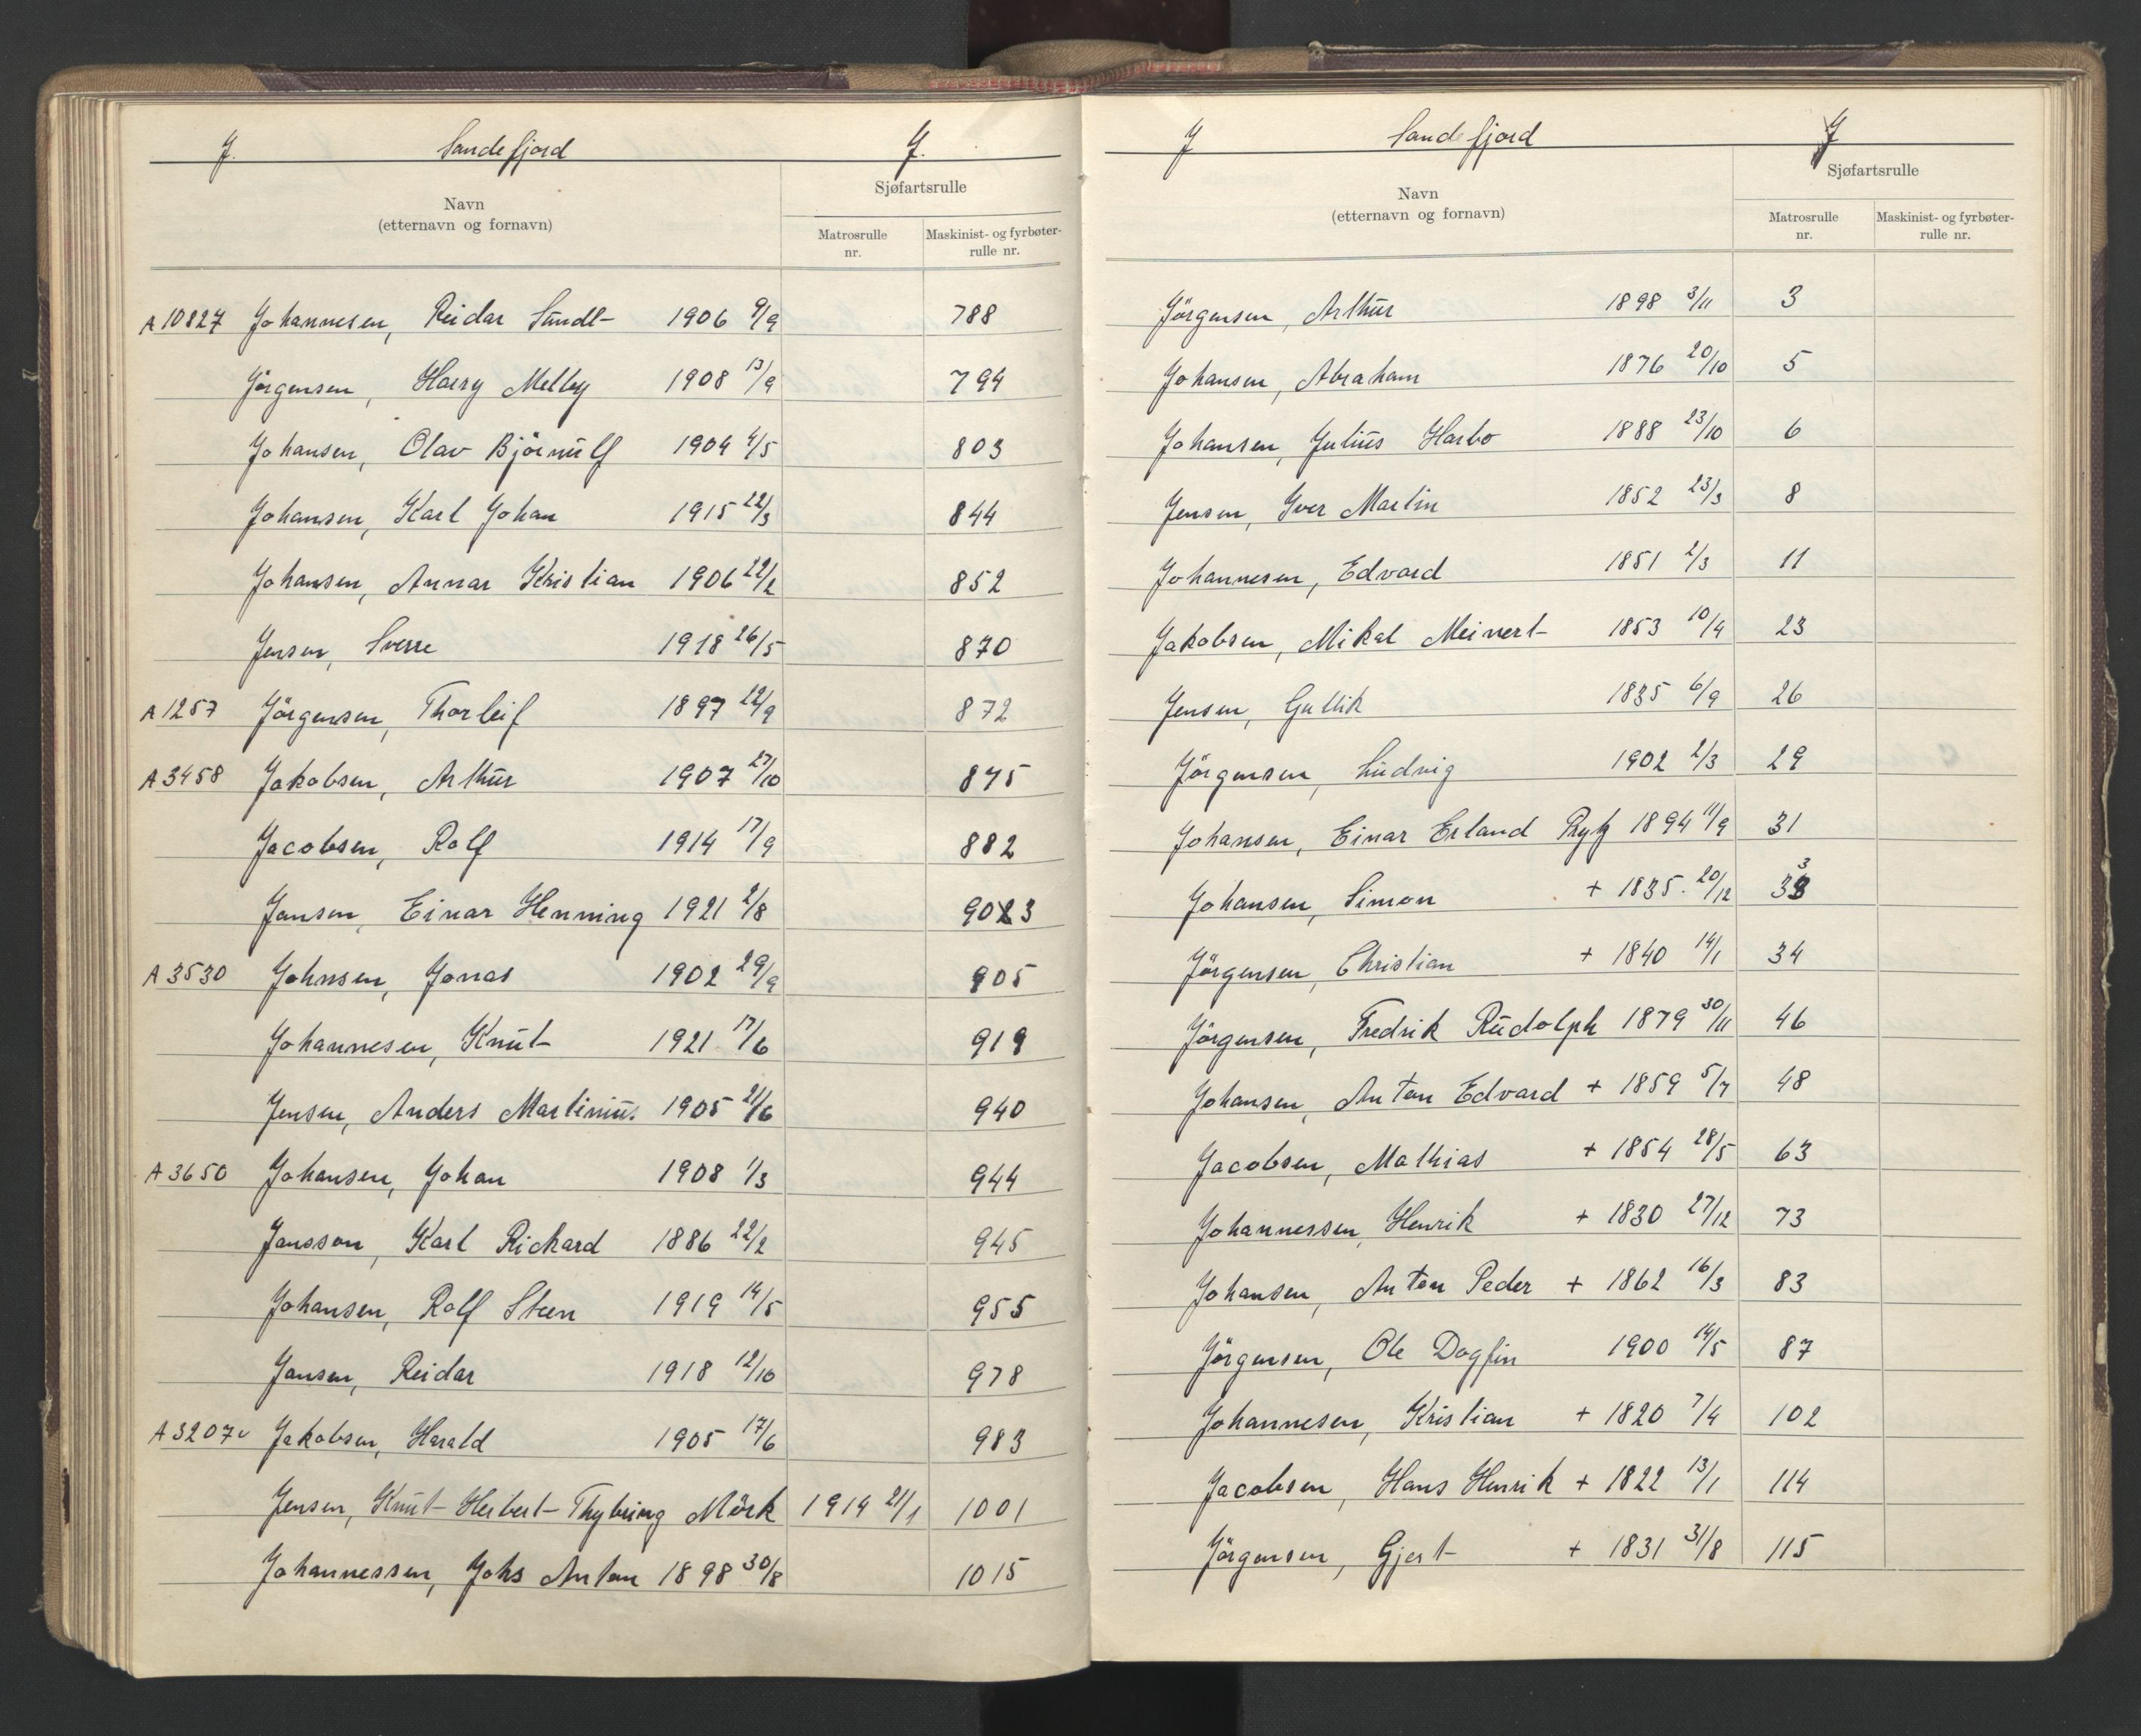 J. Sandefjord J.
Sjøfartsrulle
Navn
(etternavn og fornavn)
Matrosrulle nr. Maskinist- og fyrbøter-rulle nr.
A 10827 Johannesen, Reidar Sundt 1906 9/9 788
Jörgensen, Harry Melby 1908 13/9 794
Johansen, Olav Björnulf 1904 4/5 803
Johansen, Karl Johan 1915 22/3 844
Johansen, Annar Kristian 1906 22/2 852
Jensen, Sverre 1918 26/5 870
A 1257 Jörgensen, Thorleif 1897 22/9 872
A 3458 Jakobsen, Arthur 1907 27/10 875
Jacobsen, Rolf 1914 17/9 882
Jansen, Einar Henning 1921 2/8 903
A 3530 Johnsen, Jonas 1902 29/9 905
Johannesen, Knut 1921 17/6 919
Jensen, Anders Martinius 1905 21/6 940
A 3650 Johansen, Johan 1908 1/3 944
Jansson, Karl Rickard 1886 22/2 945
Johansen, Rolf Steen 1919 14/5 955
Jansen, Reidar 1918 12/10 978
A 3207 Jakobsen, Harald 1905 17/6 983
Jensen, Knut Herbert Thybring Mörk 1914 21/1 1001
Johannessen, Johs Anton 1898 30/8 1015
J Sandefjord J
Sjøfartsrulle
Navn
(etternavn og fornavn)
Matrosrulle nr. Maskinist- og fyrbøter-rulle nr.
Jörgensen, Arthur 1898 3/11 3
Johansen, Abraham 1876 20/10 5
Johansen, Julius Harbo 1888 23/10 6
Jensen, Iver Martin 1852 23/3 8
Johannesen, Edvard 1851 2/3 11
Jakobsen, Mikal Meinert 1853 10/4 23
Jensen, Gullik 1835 6/9 26
Jörgensen, Ludvig 1902 2/3 29
Johansen, Einar Erland 1894 11/9 31
Johansen, Simon + 1835 20/12 33
Jörgensen, Christian + 1840 14/1 34
Jörgensen, Fredrik Rudolph 1879 30/11 46
Johansen, Anton Edvard + 1859 5/7 48
Jacobsen, Mathias + 1854 28/5 63
Johannessen, Henrik + 1830 27/12 73
Johansen, Anton Peder + 1862 16/3 83
Jörgensen, Ole Dagfin 1900 14/5 87
Johannesen, Kristian + 1820 7/4 102
Jacobsen, Hans Henrik + 1822 13/1 114
Jörgensen, Gjert + 1831 31/8 115